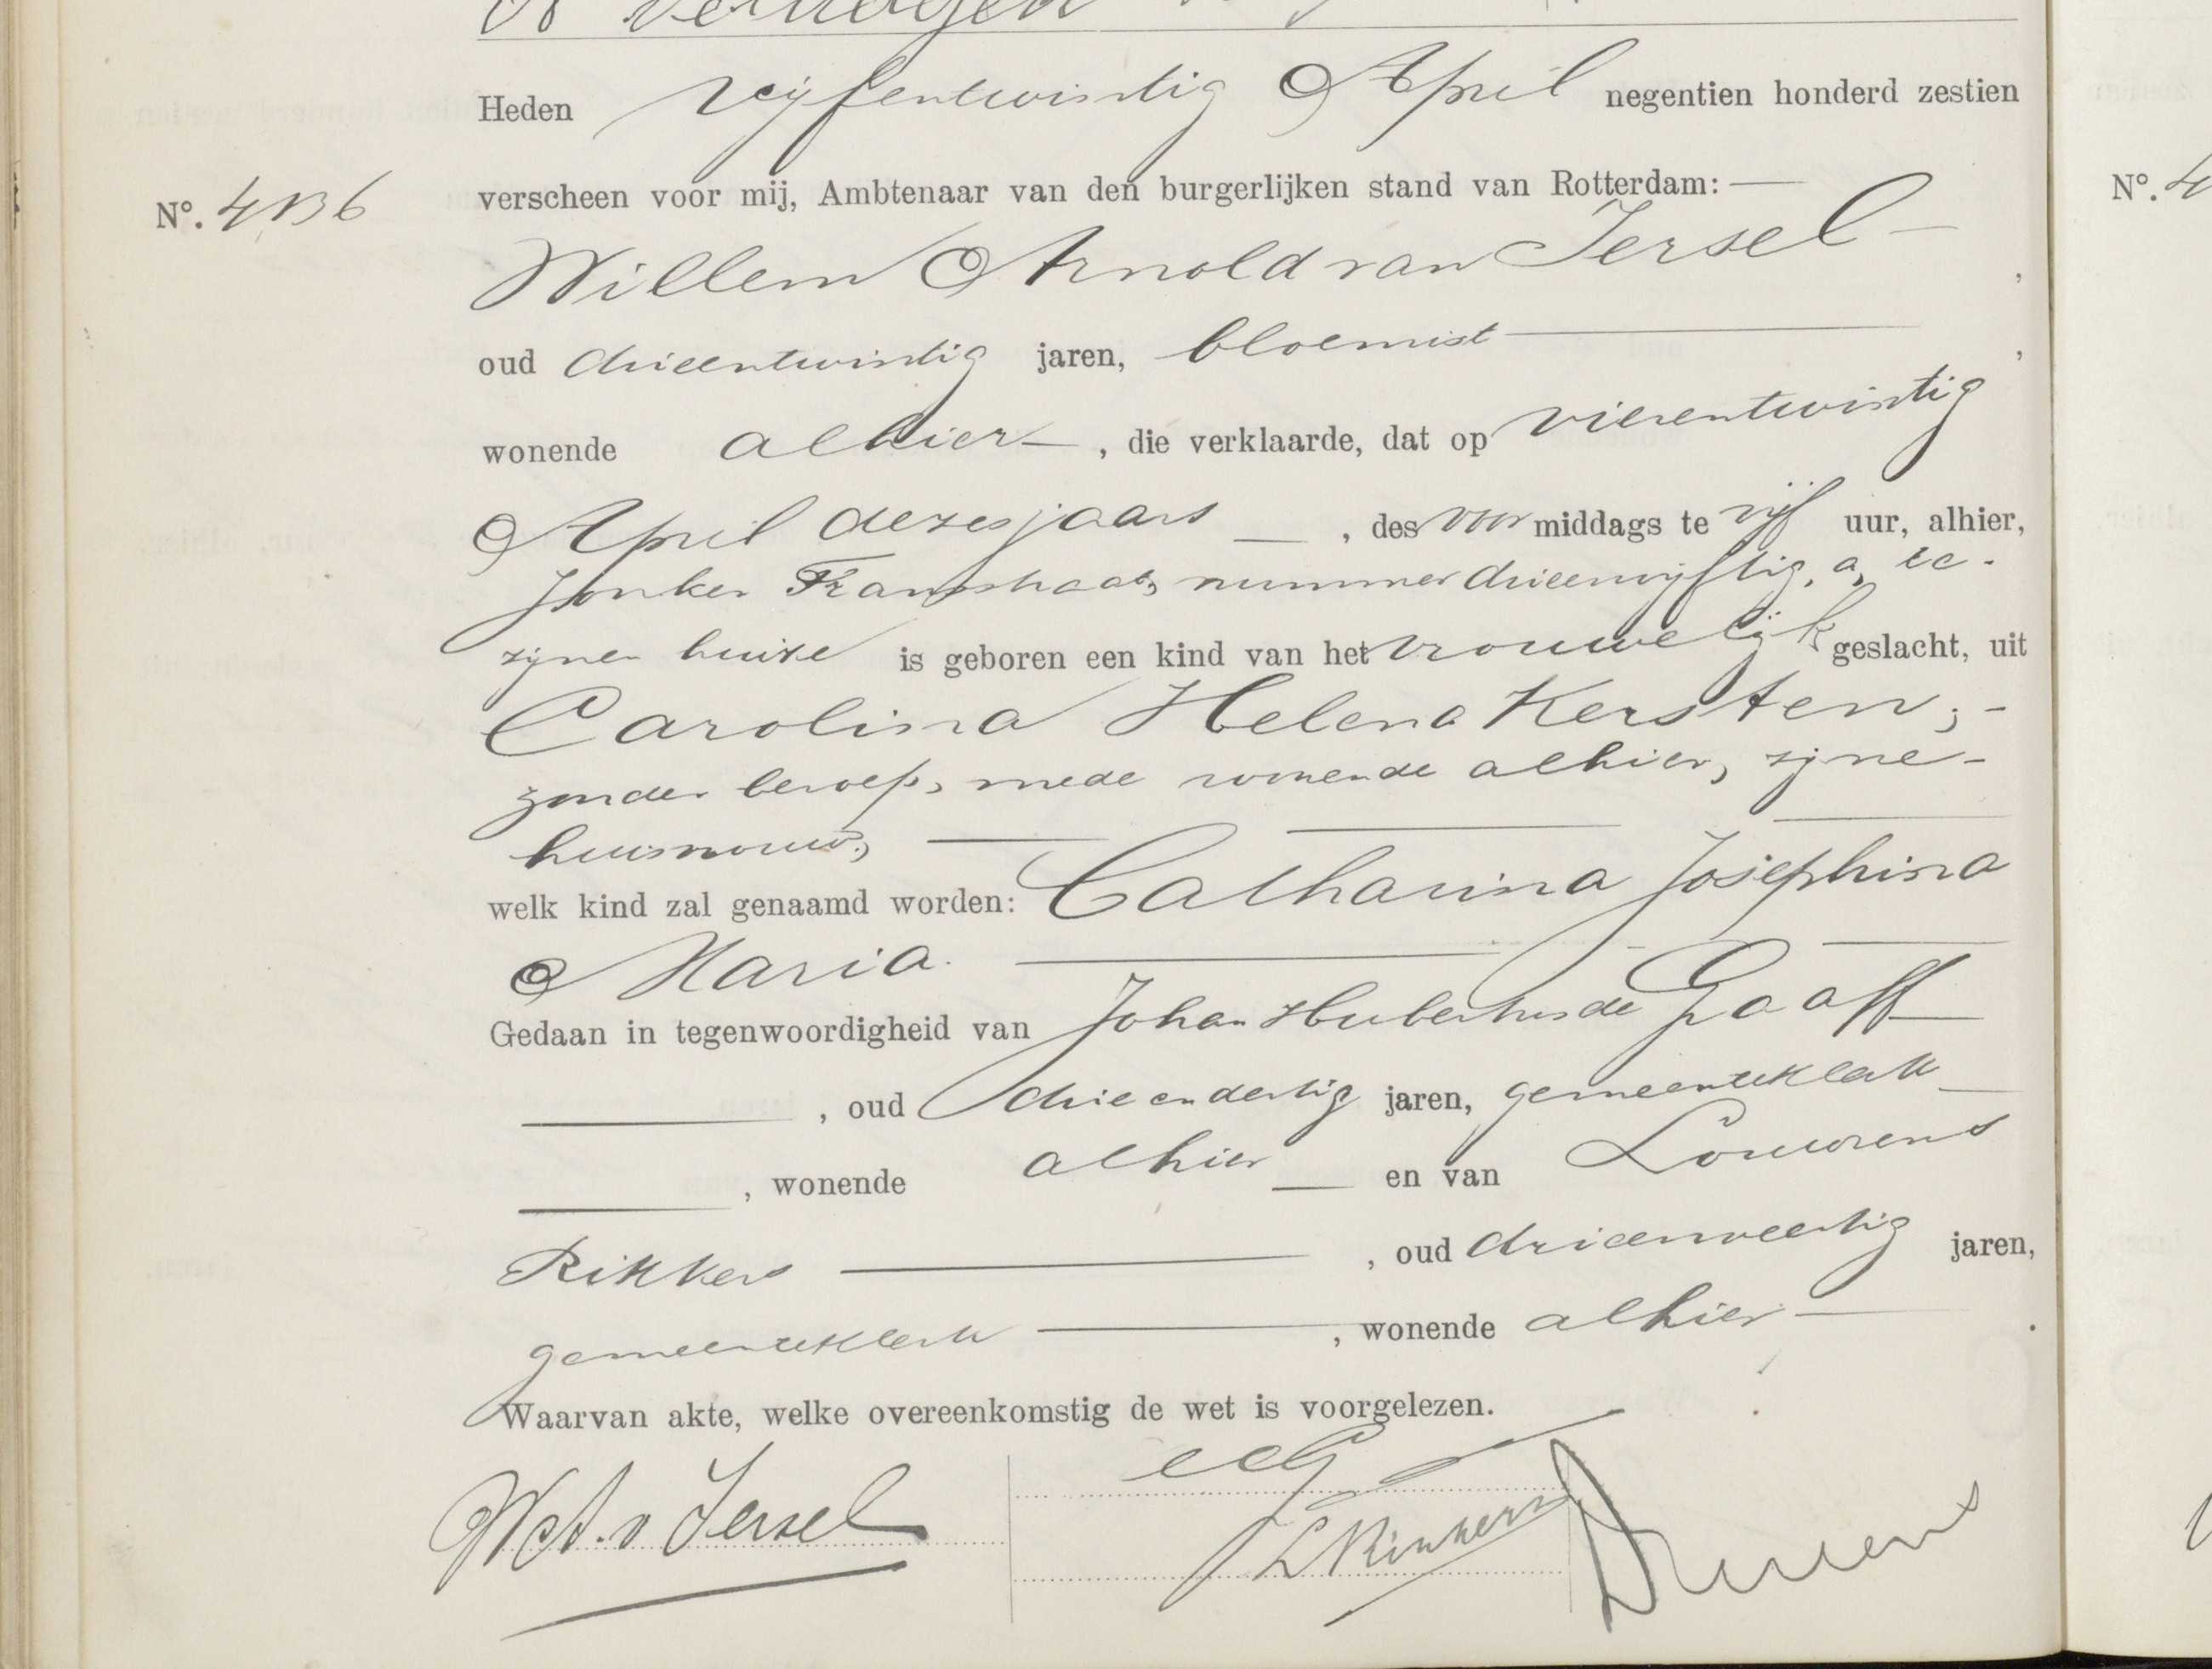 Heden vijfentwintig April negentien honderd zestien
Nº. 4136 verscheen voor mij, Ambtenaar van den burgerlijken stand van Rotterdam: —
Willem Arnold van Iersel —,
oud drieentwintig jaren, bloemist —,
wonende alhier —, die verklaarde, dat op vierentwintig
April dezes jaars —, des voormiddags te vijf uur, alhier,
Jonker Fransstraat, nummer drieenvijftig, a, te
zijnen huize is geboren een kind van het vrouwelijk geslacht, uit
Carolina Helena Kersten, -
zonder beroep, mede wonende alhier, zijne -
huisvrouw, —
welk kind zal genaamd worden: Catharina Josephina
Maria. —
Gedaan in tegenwoordigheid van Johan Hubertus de Graaff
—, oud drieendertig jaren, gemeenteklerk —
—, wonende alhier — en van Louwrens
Rikkers —, oud drieenveertig jaren,
gemeenteklerk —, wonende alhier —.
Waarvan akte, welke overeenkomstig de wet is voorgelezen.
W A. v Iersel
L Rikkers
Nº. 4